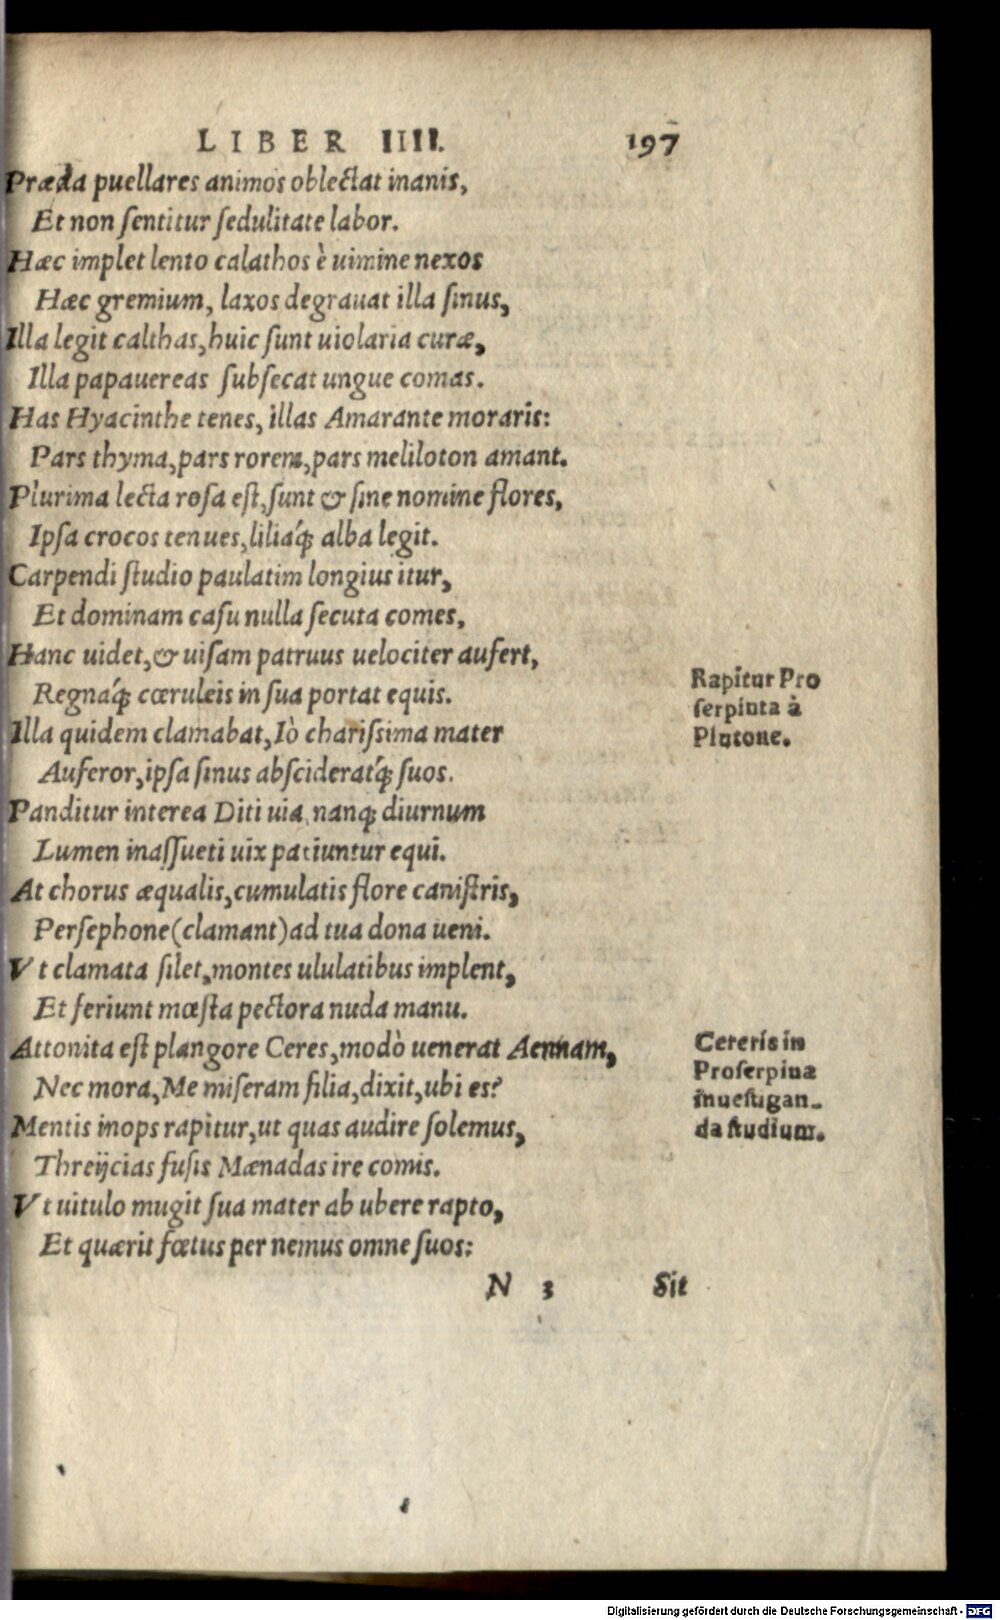 LIBER IIII. 197
Præda puellares animos oblectat inanis,
Et non ſentitur ſedulitate labor.
Hæc implet lento calathos è uimine nexos
Hæc gremium, laxos degrauat illa ſinus,
Illa legit calthas, huic ſunt uiolaria curæ,
Illa papauereas ſubſecat ungue comas.
Has Hyacinthe tenes, illas Amarante moraris:
Pars thyma, pars rorem, pars meliloton amant.
Plurima lecta roſa eſt, ſunt & ſine nomine flores,
Ipſa crocos tenues, liliaq́; alba legit.
Carpendi ſtudio paulatim longius itur,
Et dominam caſu nulla ſecuta comes,
Hanc uidet, & uiſam patruus uelociter aufert,
Regnaq́; cœruleis in ſua portat equis.
Rapitur Pro
ſerpinta à
Plutone.
Illa quidem clamabat, Iò chariſsima mater
Auferor, ipſa ſinus abscideratq́; ſuos.
Panditur interea Diti uia, nanq; diurnum
Lumen inaſſueti uix patiuntur equi.
At chorus æqualis, cumulatis flore caniſtris,
Perſephone (clamant) ad tua dona ueni.
Vt clamata ſilet, montes ululatibus implent,
Et feriunt mœſta pectora nuda manu.
Attonita eſt plangore Ceres, modò uenerat Aennam,
Nec mora, Me miſeram filia, dixit, ubi es?
Cereris in
Proſerpina
inueſtigan-
da ſtudium.
Mentis inops rapitur, ut quas audire ſolemus,
Threijcias fuſis Mænadas ire comis.
Vt uitulo mugit ſua mater ab ubere rapto,
Et quærit fœtus per nemus omne ſuos:
N 3 Sit
Digitalisierung gefördert durch die Deutsche Forschungsgemeinschaft - DFG